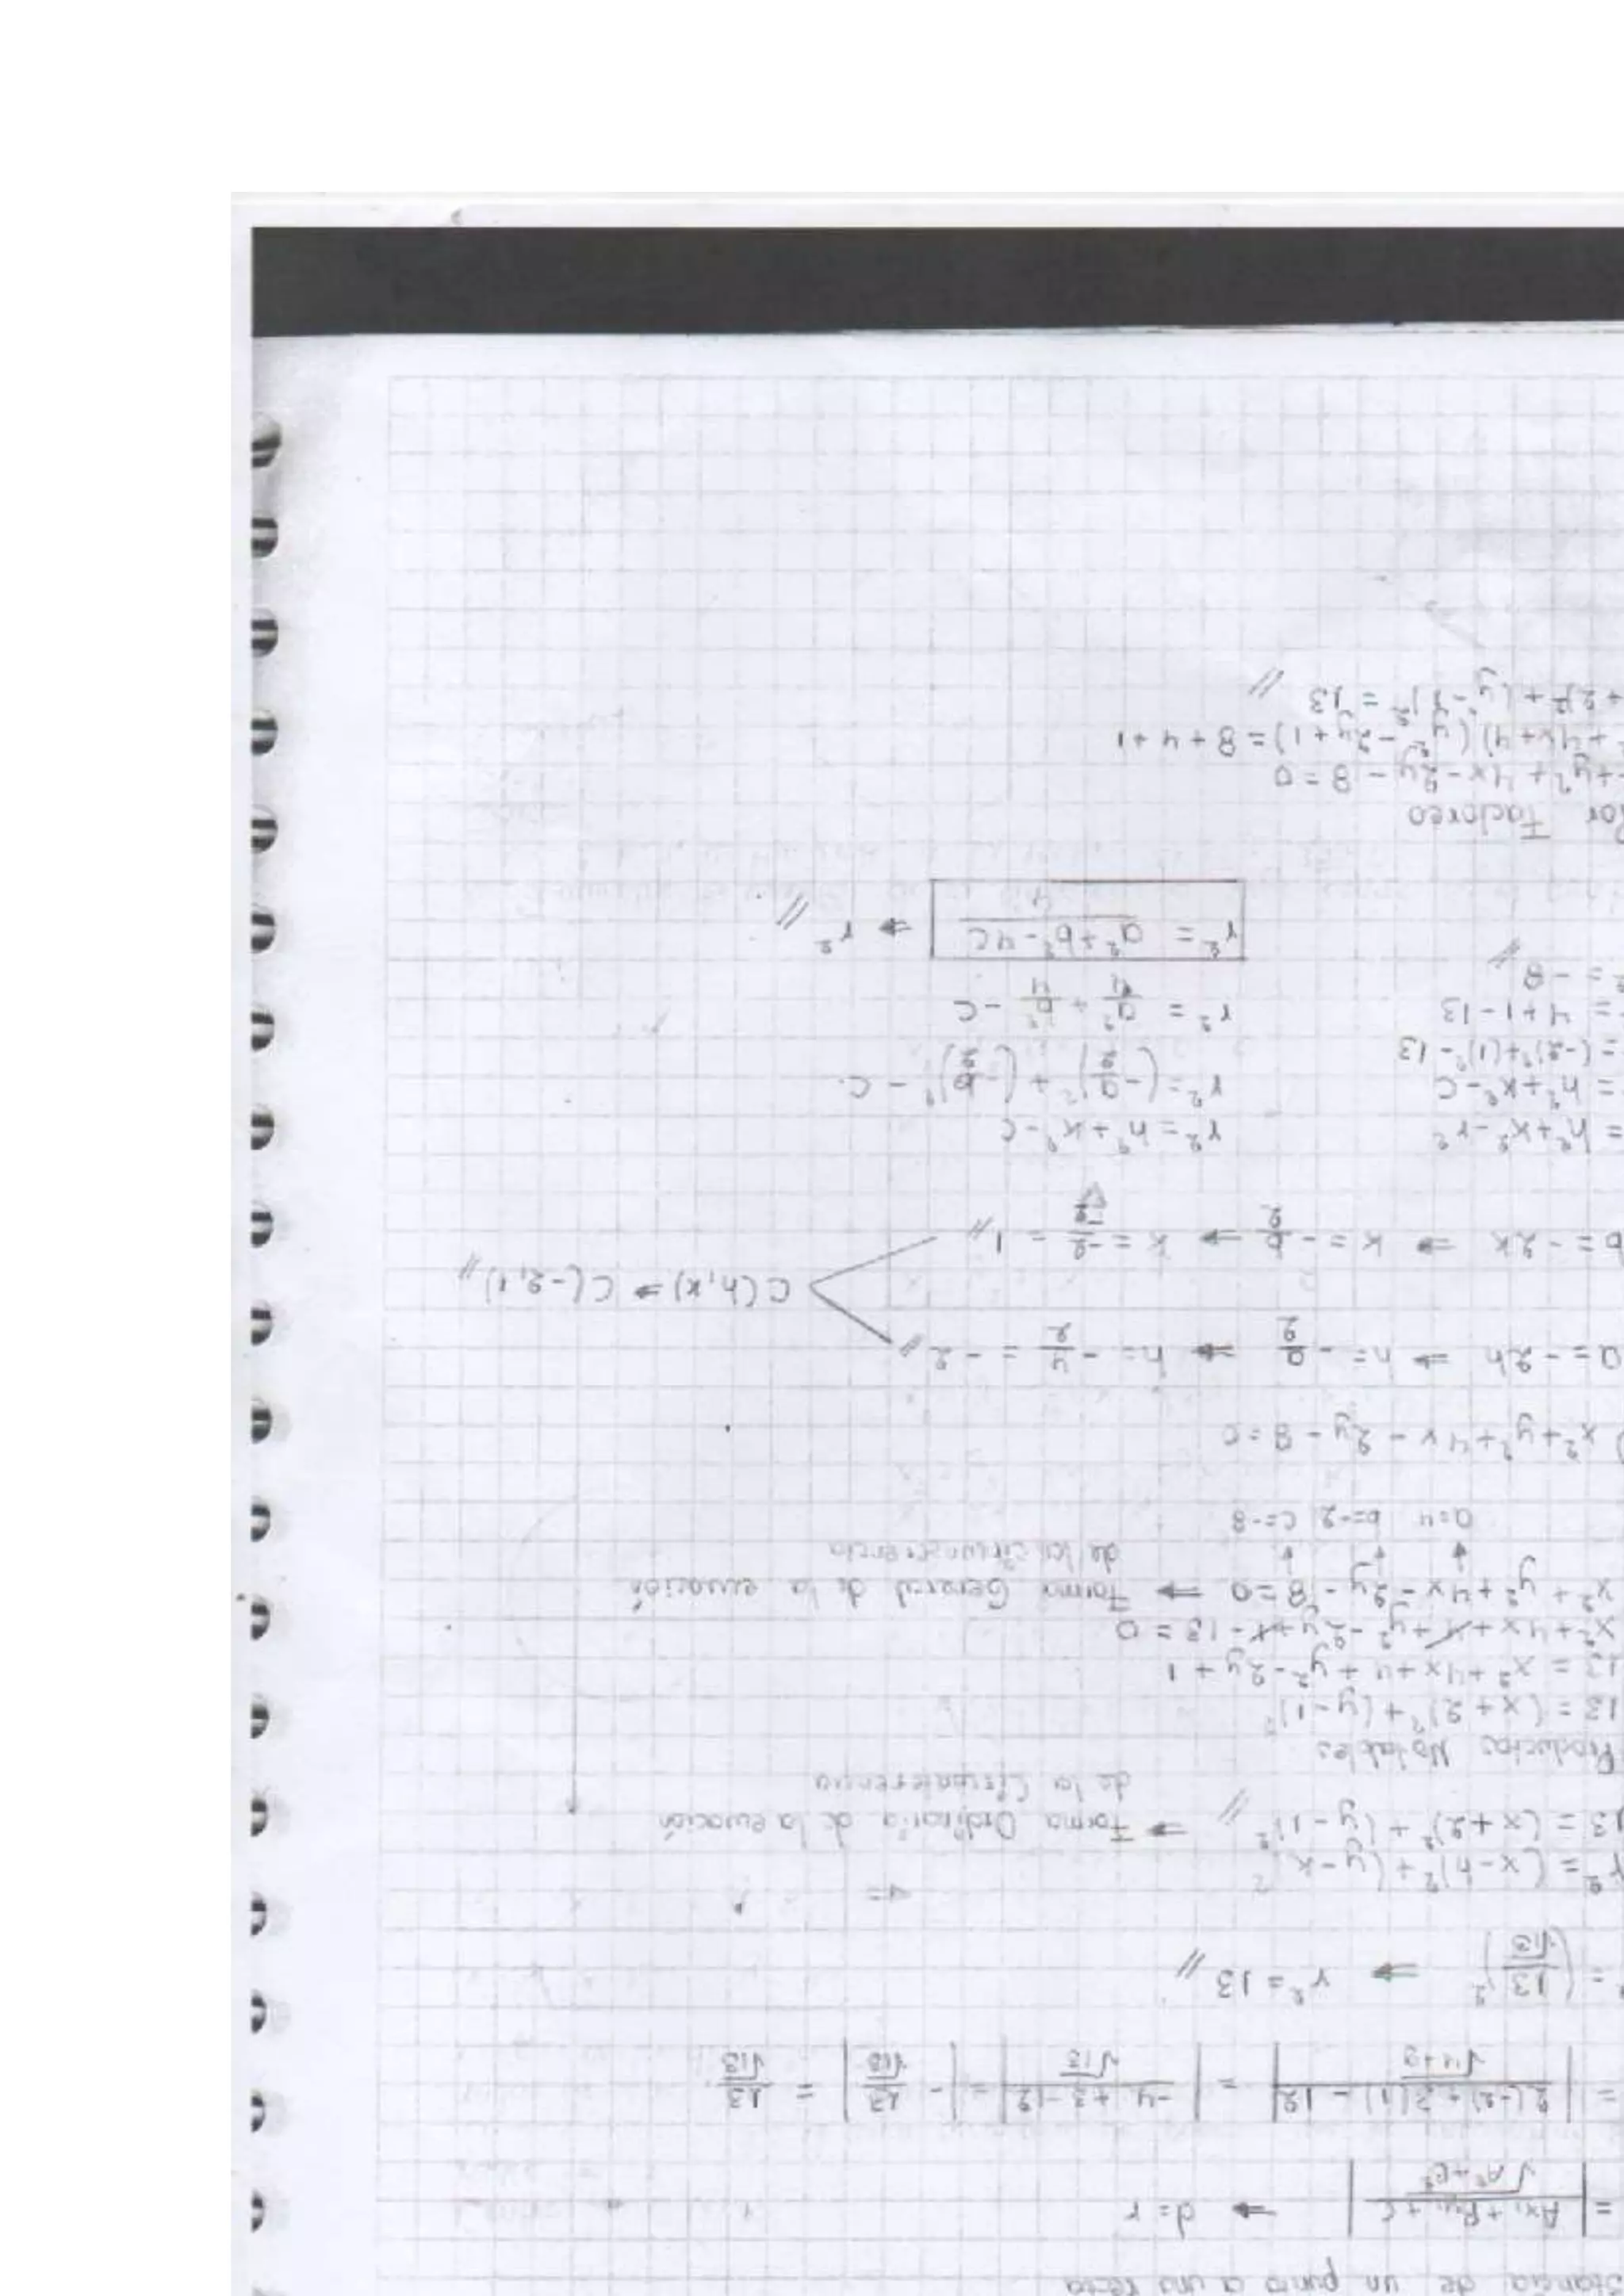 de un punto a una recta
= |Ax₁+By₁+C / √A²+B²| ⇒ d=r
= |2(-2)+3(1)-12 / √4+9| = |-4+3-12 / √13| = |-13/√13| = 13/√13
= (13/√13)² ⇒ r²=13 //
r²=(x-h)²+(y-k)²
13=(x+2)²+(y-1)² // ⇒ Forma Ordinaria de la ecuación
de la Circunferencia
Productos Notables
13=(x+2)²+(y-1)²
13=x²+4x+4+y²-2y+1
x²+4x+4+y²-2y+1-13=0
x²+y²+4x-2y-8=0 ⇒ Forma General de la ecuación
de la circunferencia
a=4 b=-2 c=-8
x²+y²+4x-2y-8=0
a=-2h ⇒ h=-a/2 ⇒ h=-4/2=-2 //
C(h,k) ⇒ C(-2,1) //
b=-2k ⇒ k=-b/2 ⇒ k=-2/-2=1 //
=h²+k²-r² r²=h²+k²-c
=h²+k²-c r²=(-a/2)²+(-b/2)²-c
=(-2)²+(1)²-13 r²=a²/4+b²/4-c
=4+1-13 r²=a²+b²-4c/4 ⇒ r² //
=-8 //
Por Factoreo
+y²+4x-2y-8=0
+4x+4)(y²-2y+1)=8+4+1
+2)²+(y-1)²=13 //